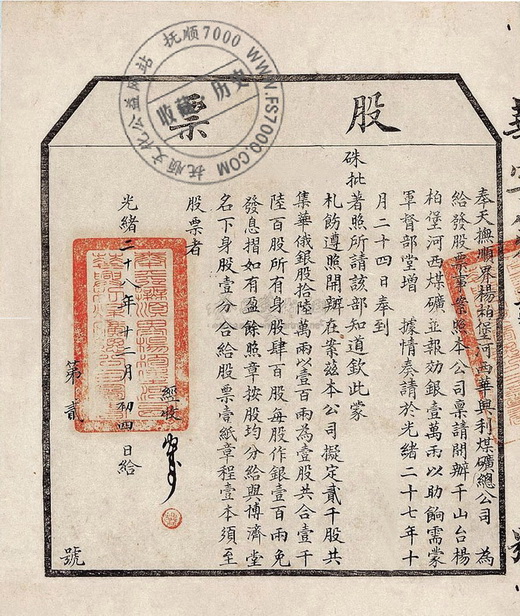 股票
奉天撫順界楊柏堡河西華興利煤礦總公司 為
給發股票事案照本公司稟請開辦千山台楊
柏堡河西煤礦並報効銀壹萬兩以助餉需蒙
軍督部堂增 據情奏請於光緒二十七年十
月二十四日奉到
硃批著照所請該部知道欽此蒙
札飭遵照開辦在案茲本公司擬定貳千股共
集華俄銀股拾陸萬兩以一百兩為壹股共合壹千
陸百股所有身股肆百股每股作銀壹百兩免
發息摺如有盈餘照章按股均分給與博濟堂
名下身股壹分合給股票壹紙章程壹本須至
股票者
經收
光緒二十八年十二月初四日給
第貳 號
抚顺7000 WWW.FS7000.COM 抚顺文化公益网站
收藏 历史